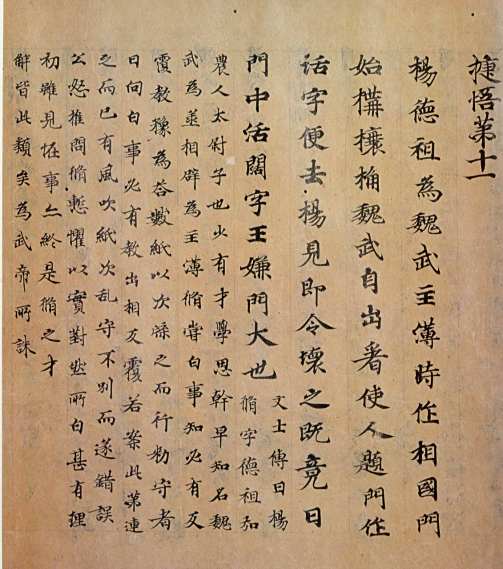 捷悟第十一
楊德祖為魏武主簿時作相國門
始搆榱桷魏武自出看使人題門作
活字便去楊見即令壞之既竟曰
門中活闊字王嫌門大也
文士傳曰楊
脩字德祖弘
農人太尉子也少有才學思幹早知名魏
武為丞相辟為主簿脩甞白事知必有反
覆教豫為荅數紙以次牒之而行勑守者
曰向白事必有教出相反覆若案此第連
之而已有風吹紙次乱守不別而遂錯誤
公怒推問脩慙懼以實對然所白甚有理
初雖見怪事亦終是脩之才
解皆此類矣為武帝所誅